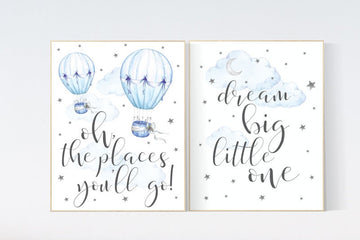 oh,
the places
you'll go!
dream
big
little
one